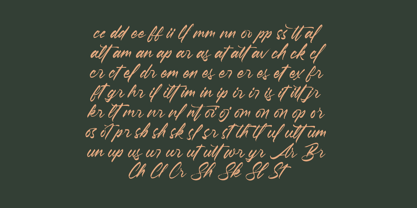 cc dd ee ff ii ll mm nn oo pp ss tt al
all am an ap ar as at att av ch ck cl
cr ct el dr em en es er er es et ex fr
ft gr hr il ill im in ip ir is it itt jr
kr lt mr nr nl nt oi oj om on on op or
os ot pr sb sh sk sl sr st th tl ul ull um
un up us ur ur ut utt wr yr Ar Br
Ch Cl Cr Sh Sk Sl St